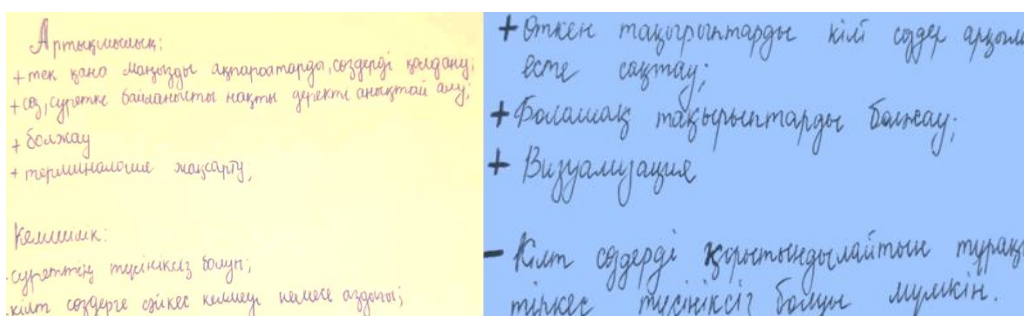 Артықшылық:
+ тек қана маңызды ақпараттарды, сөздерді қолдану;
+ сөз, суретке байланысты нақты деректі анықтай алу;
+ болжау
+ терминология жақсарту,
Кемшілік:
суреттің түсініксіз болуы;
кілт сөздерге сәйкес келмеуі немесе аздығы;
+ Өткен тақырыптарды кілт сөздер арқылы
есте сақтау;
+ Болашақ тақырыптарды болжау;
+ Визуализация
- Кілт сөздерді қорытындылайтын тұрақты
тіркес түсініксіз болуы мүмкін.